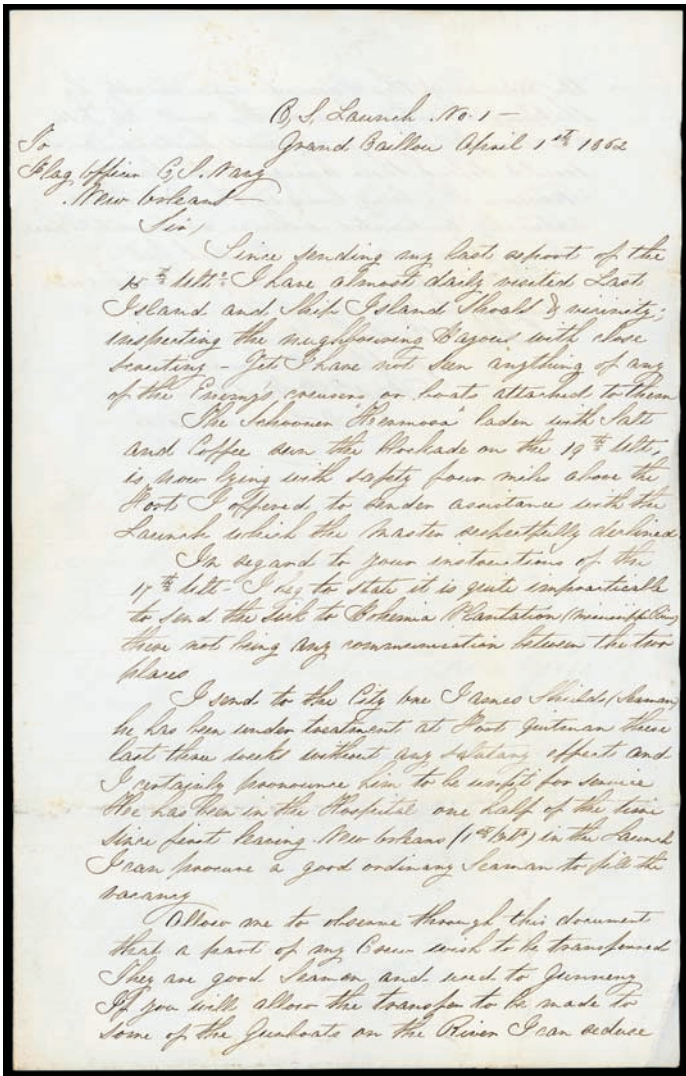 C, S, Launch No. 1 —
Grand Caillou April 1st 1862
To
Flag Officer C, S. Navy
New Orleans —
Sir,
Since sending my last report of the
15th Ulto. I have almost daily visited Last
Island and Ship Island Shoals & vicinity;
inspecting the neighbouring Bayous with close
scrutiny — Yet I have not seen anything of any
of the Enemy's cruisers or boats attached to them
The Schooner "Hermosa" laden with Salt
and Coffee run the blockade on the 19th Ulto,
is now lying with safety four miles above the
Fort I offered to render assistance with the
Launch, which the Master respectfully declined.
In regard to your instructions of the
17th Ulto — I beg to state it is quite impracticable
to send the Sick to Bohemia Plantation (Mississippi River)
there not being any communication between the two
places
I send to the City one James Shields (Seaman)
he has been under treatment at Fort Quitman these
last three weeks without any salutary effect and
I certainly pronounce him to be unfit for service
He has been in the Hospital one half of the time
since first leaving New Orleans in the Launch
I can procure a good ordinary Seaman to fill the
vacancy
Allow me to observe through this document
that a part of my Crew wish to be transferred
They are good Seamen and used to Gunnery
If you will allow the transfer to be made to
some of the Gunboats on the River I can reduce